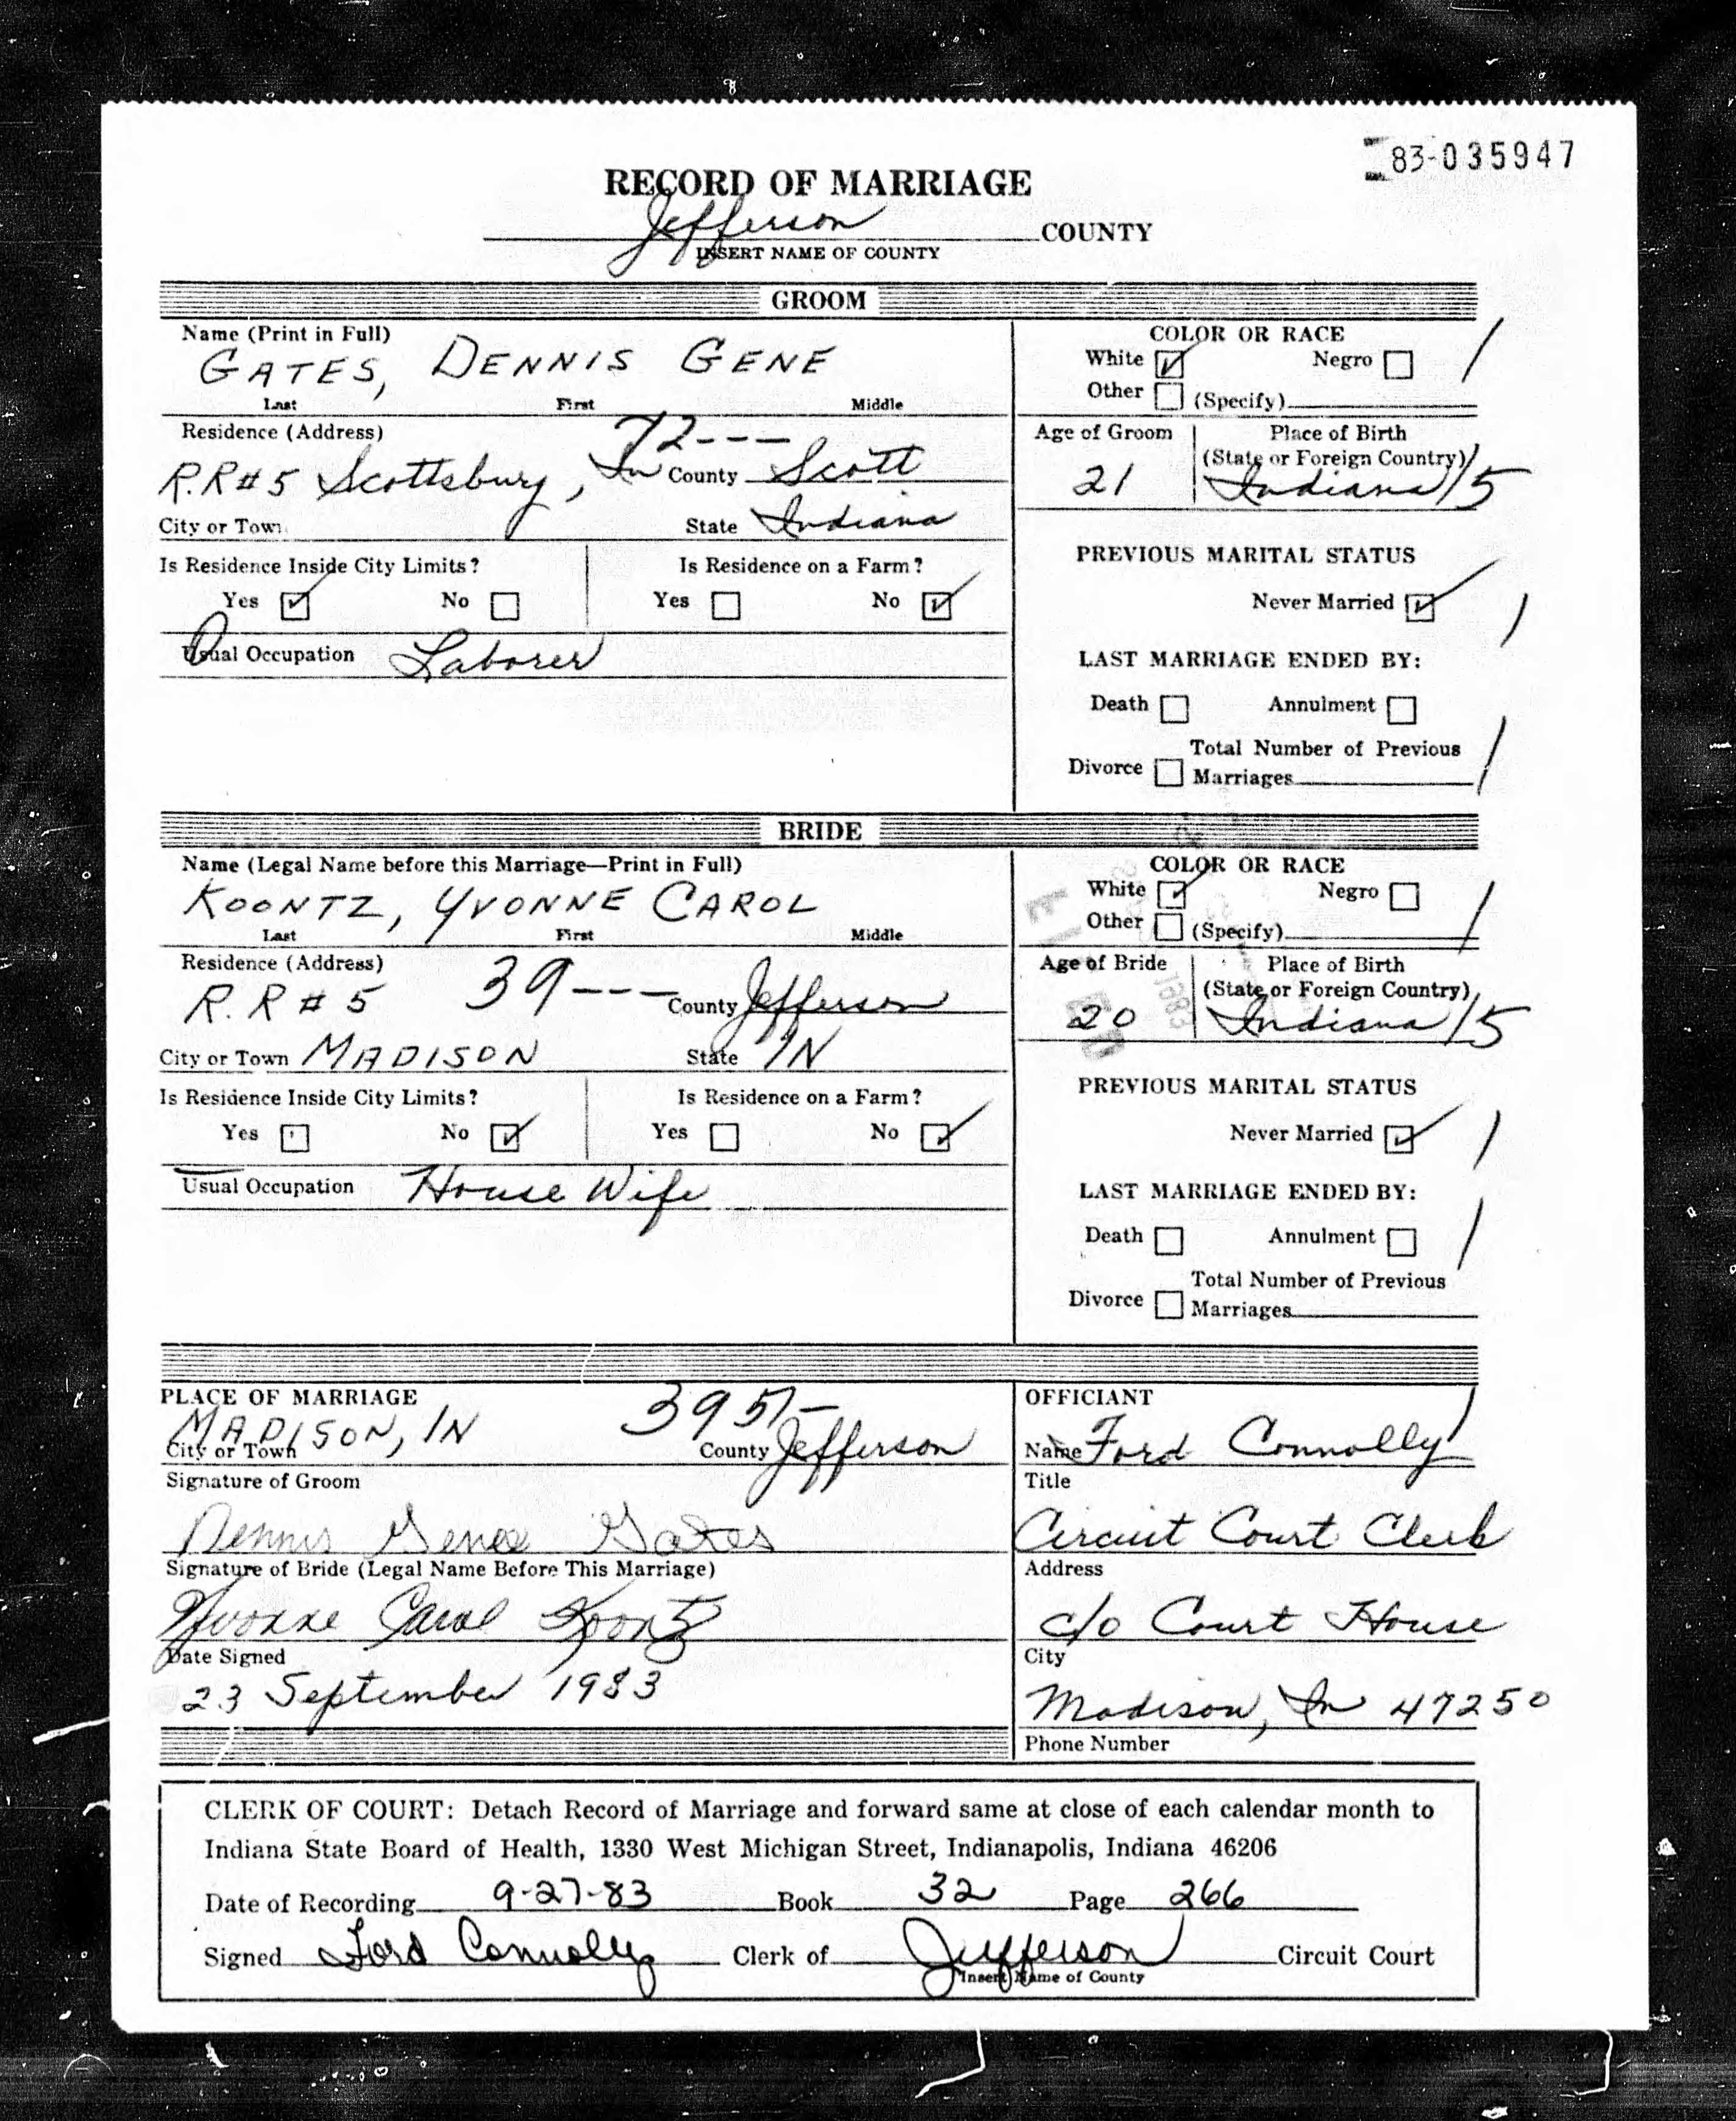 83-035947
RECORD OF MARRIAGE
Jefferson COUNTY
INSERT NAME OF COUNTY
GROOM
Name (Print in Full)
GATES, DENNIS GENE
Last First Middle
COLOR OR RACE
White ☑ Negro ☐ /
Other ☐ (Specify)
Residence (Address) 72---
R.R#5 Scottsburg, In County Scott
City or Town State Indiana
Age of Groom
21
Place of Birth
(State or Foreign Country)
Indiana 15
Is Residence Inside City Limits? Is Residence on a Farm?
Yes ☑ No ☐ Yes ☐ No ☑
Usual Occupation Laborer
PREVIOUS MARITAL STATUS
Never Married ☑ /
LAST MARRIAGE ENDED BY:
Death ☐ Annulment ☐
Divorce ☐ Total Number of Previous /
Marriages
BRIDE
Name (Legal Name before this Marriage—Print in Full)
KOONTZ, YVONNE CAROL
Last First Middle
COLOR OR RACE
White ☑ Negro ☐ /
Other ☐ (Specify)
Residence (Address)
R.R #5 39--- County Jefferson
City or Town MADISON State IN
Age of Bride
20
Place of Birth
(State or Foreign Country)
Indiana 15
Is Residence Inside City Limits? Is Residence on a Farm?
Yes ☐ No ☑ Yes ☐ No ☑
Usual Occupation House Wife
PREVIOUS MARITAL STATUS
Never Married ☑ /
LAST MARRIAGE ENDED BY:
Death ☐ Annulment ☐ /
Divorce ☐ Total Number of Previous
Marriages
PLACE OF MARRIAGE 3951-
MADISON, IN
City or Town County Jefferson
Signature of Groom
Dennis Gene Gates
Signature of Bride (Legal Name Before This Marriage)
Yvonne Carol Koontz
Date Signed
23 September 1983
OFFICIANT /
Name Ford Connolly
Title
Circuit Court Clerk
Address
c/o Court House
City
Madison, In 47250
Phone Number
CLERK OF COURT: Detach Record of Marriage and forward same at close of each calendar month to
Indiana State Board of Health, 1330 West Michigan Street, Indianapolis, Indiana 46206
Date of Recording 9-27-83 Book 32 Page 266
Signed Ford Connolly Clerk of Jefferson Circuit Court
Insert Name of County